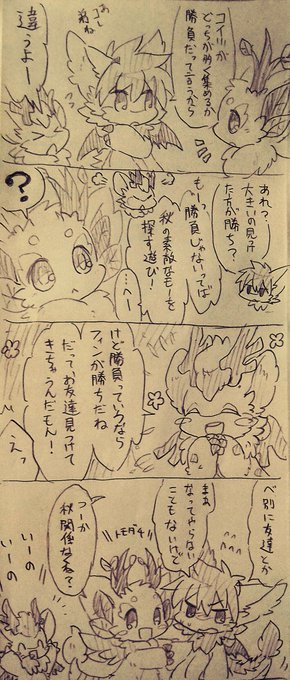 コイツが
どっちが多く集めるか
勝負だって言うから
違うよー
あれっ
大きいの見つけ
た方が勝ち?
もーっ
勝負じゃないってば
秋の素敵なモノを
探す遊び!
へー
?
けど勝負っていうなら
フィンが勝ちだね
だってお友達見つけて
キちゃうんだもん!
えっ
べ別に友達とか
まぁ
なってやらない
こともないけど
トモダチ
つーか
秋関係なくね?
いーの
いーの